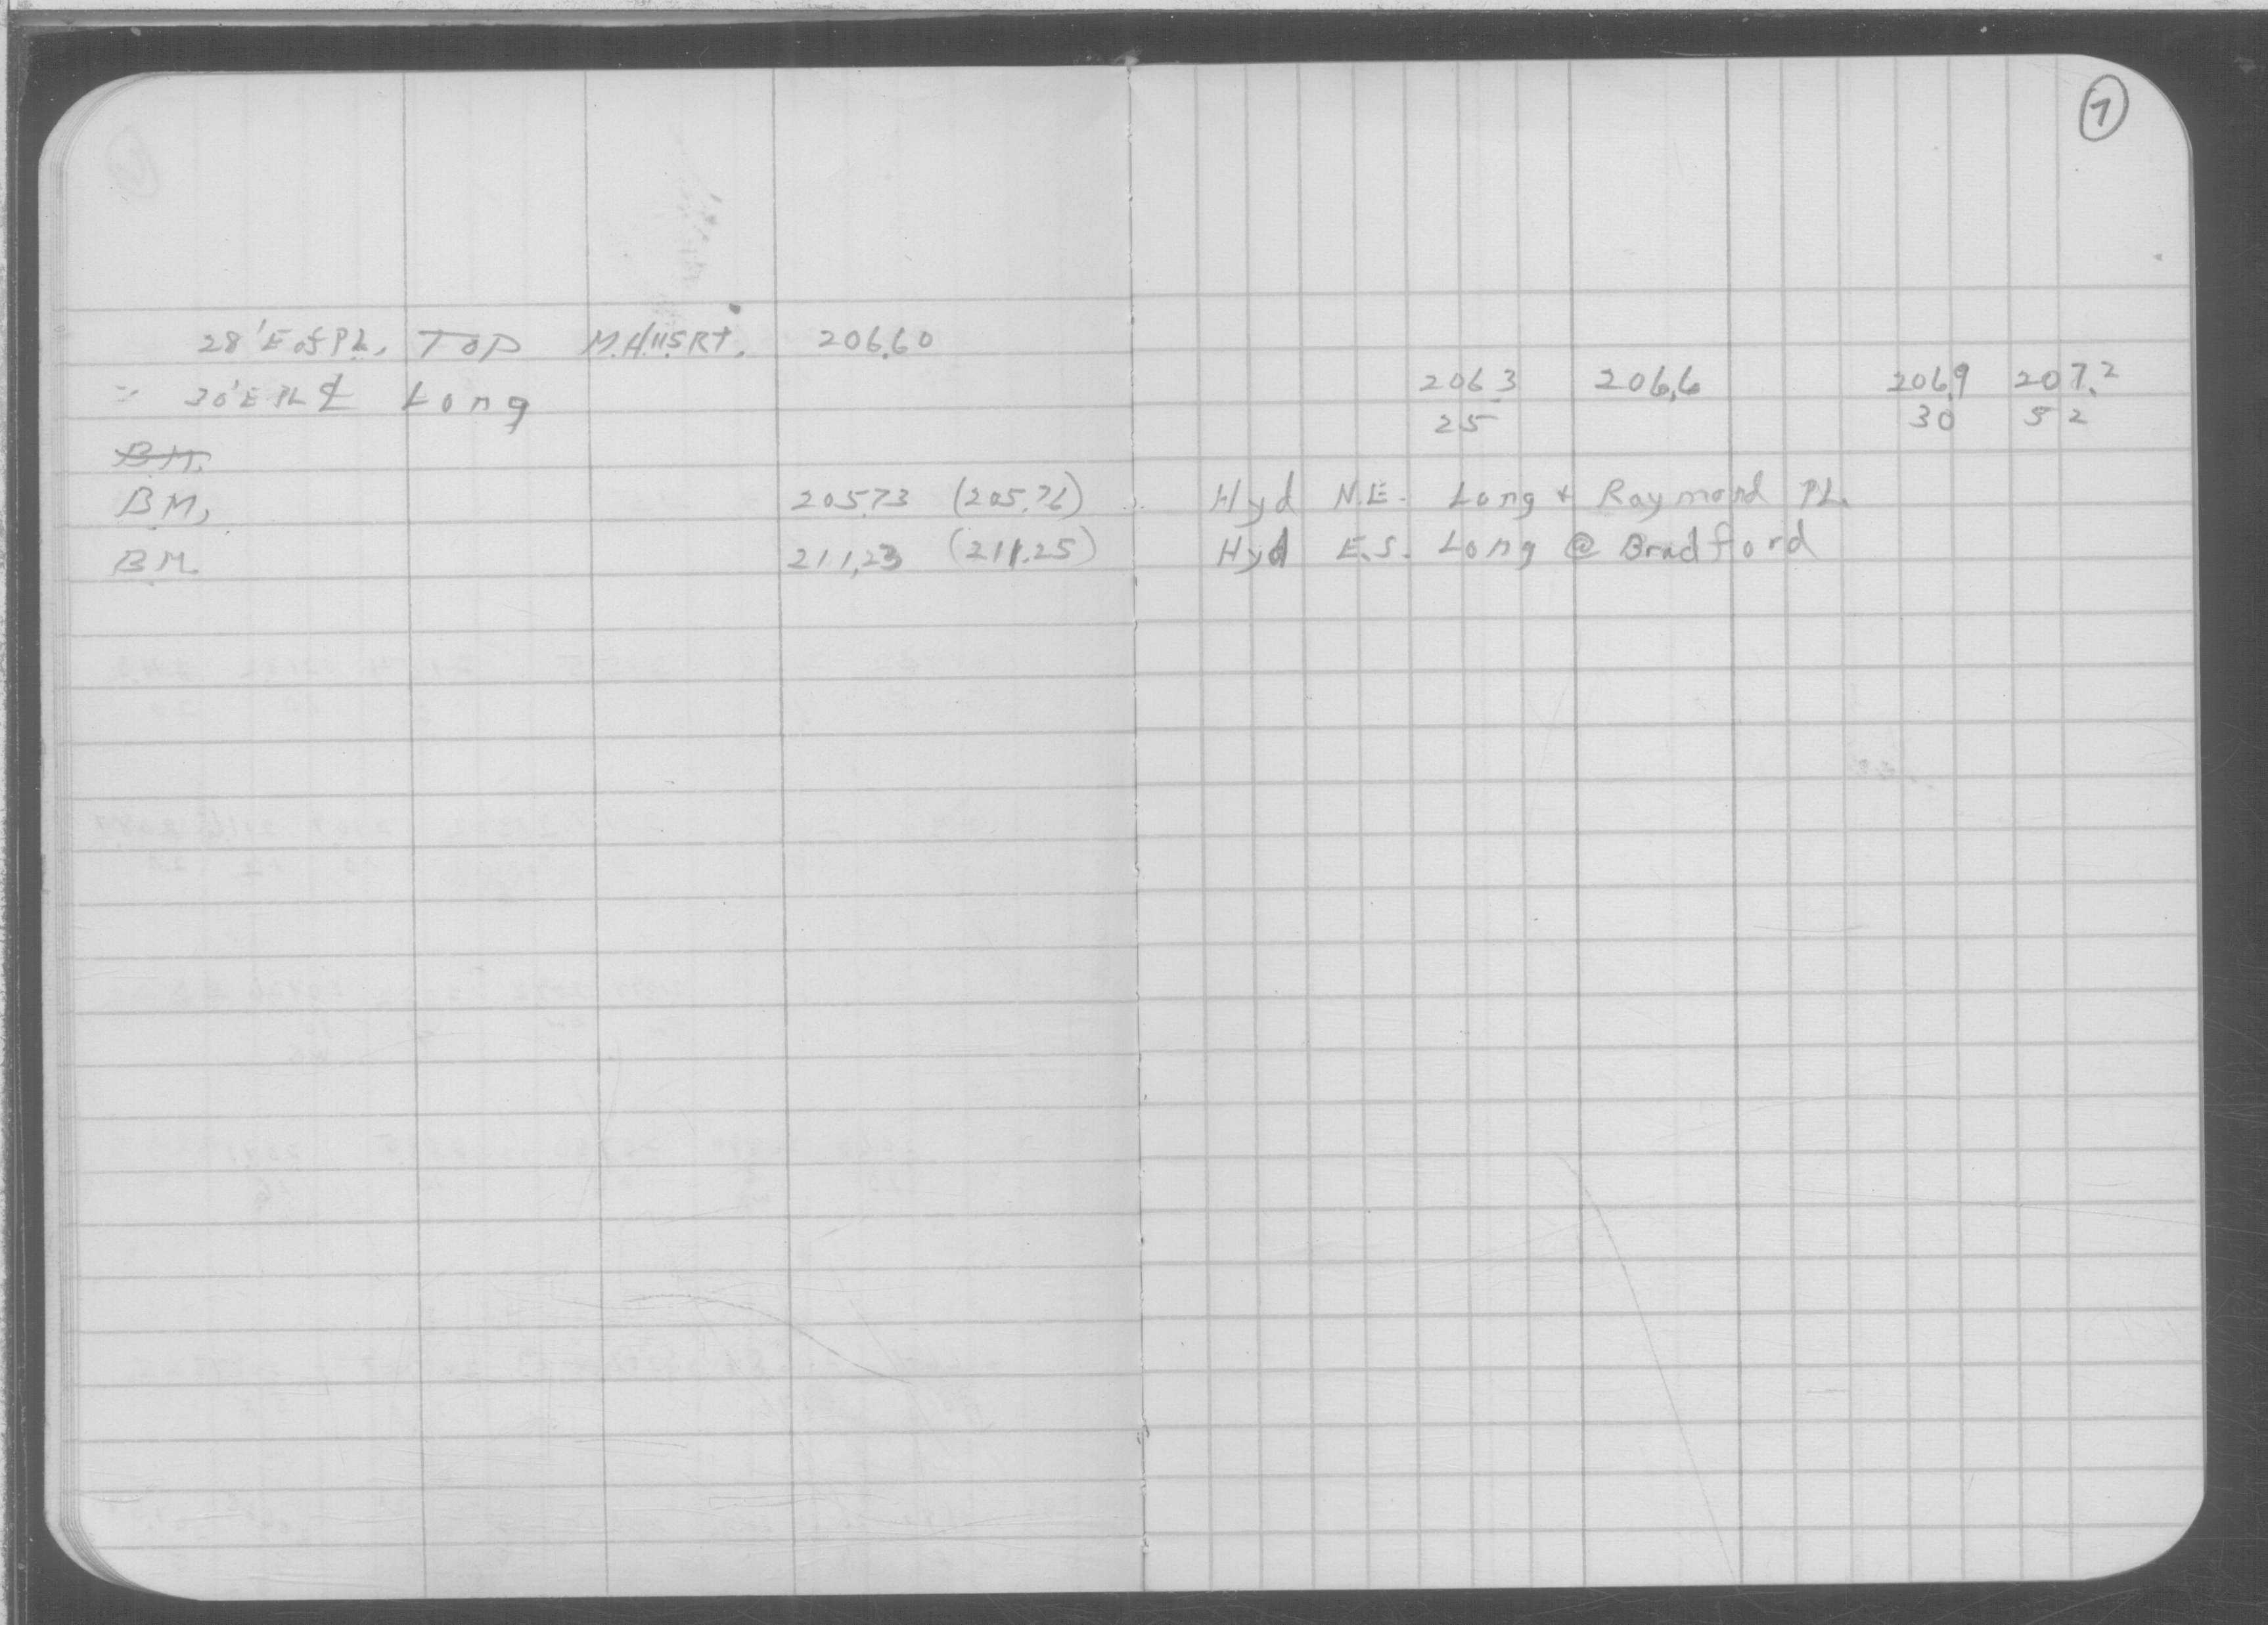 7
28' E of PL. TOP M.H. 115 Rt. 206.60
= 30' E PL ℄ Long 206.3 206.6 206.9 207.2
25 30 52
B.M.
B.M. 205.73 (205.76) Hyd N.E. Long + Raymond PL.
B.M. 211.23 (211.25) Hyd E.S. Long @ Bradford